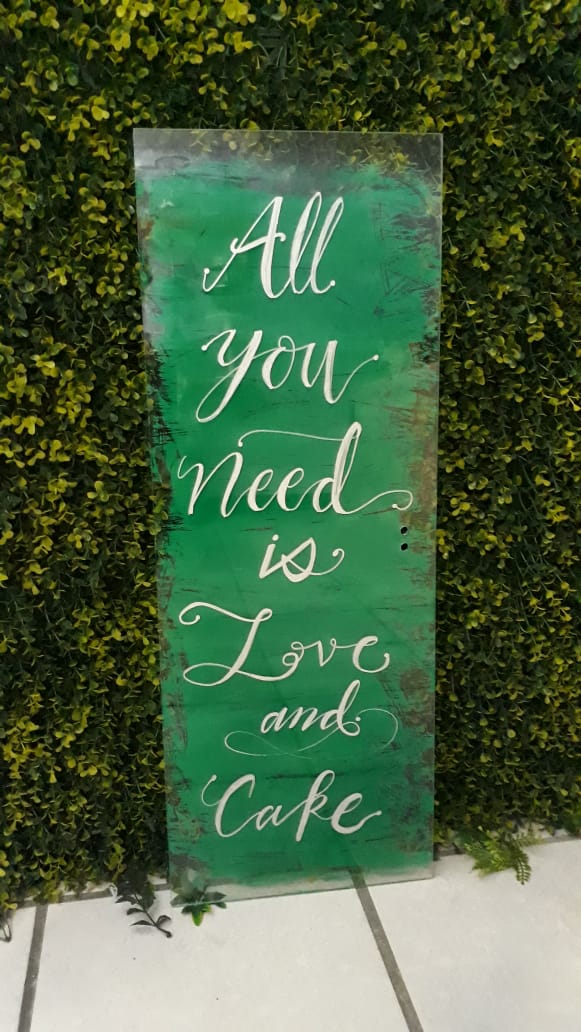 All
you
need
is
Love
and
Cake